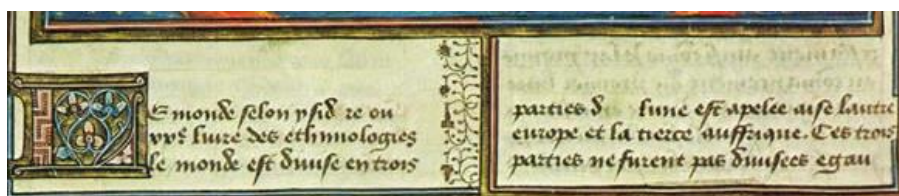 Le monde selon ysid re ou
xve livre des ethimologies
le monde est divise en trois
parties d lune est apelee aise lautre
europe et la tierce auffrique. Ces trois
parties ne furent pas divisees egau